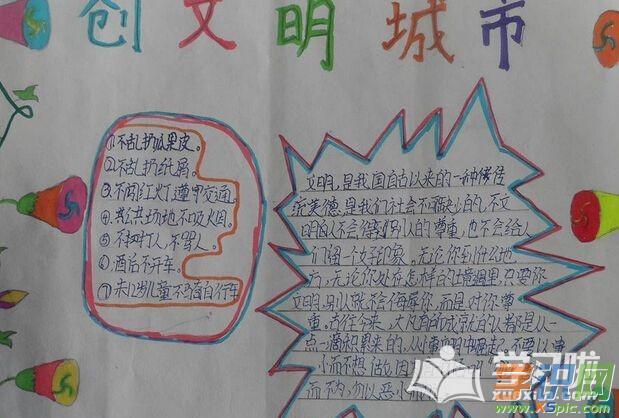 创文明城市
①不乱扔瓜果皮。
②不乱扔纸屑。
③不闯红灯,遵守交通。
④公共场地不吸烟。
⑤不打人,不骂人。
⑥酒后不开车。
⑦未12岁儿童不骑自行车
文明,是我国自古以来的一种传
统美德,是我们社会不可缺少的,不文
明的人不会得到别人的尊重,也不会给人
们留一个好印象。无论你到什么地
方,无论你处在怎样的环境里,只要你
文明,别人就不会侮辱你,而是对你尊
重。古往今来,大凡有所成就的人都是从一
点一滴积累来的,从
小而不
而为
学习啦
xuexila.com
学科网
XSpic.com